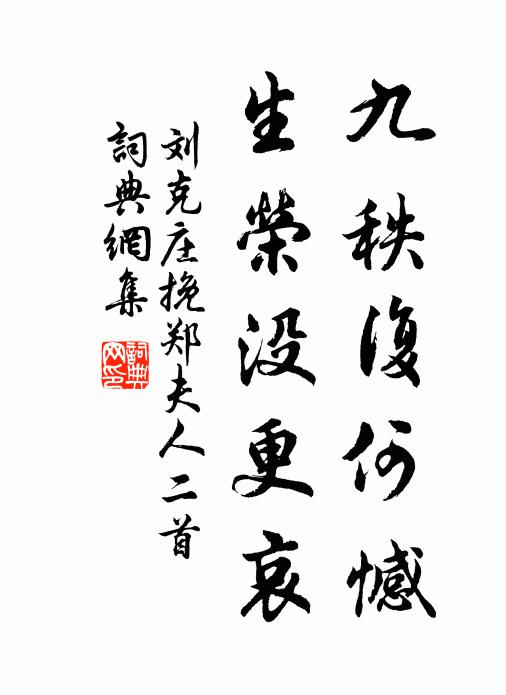 九秩復何憾
生榮没更哀
刘克庄挽郑夫人二首
詞典網集
詞典网印